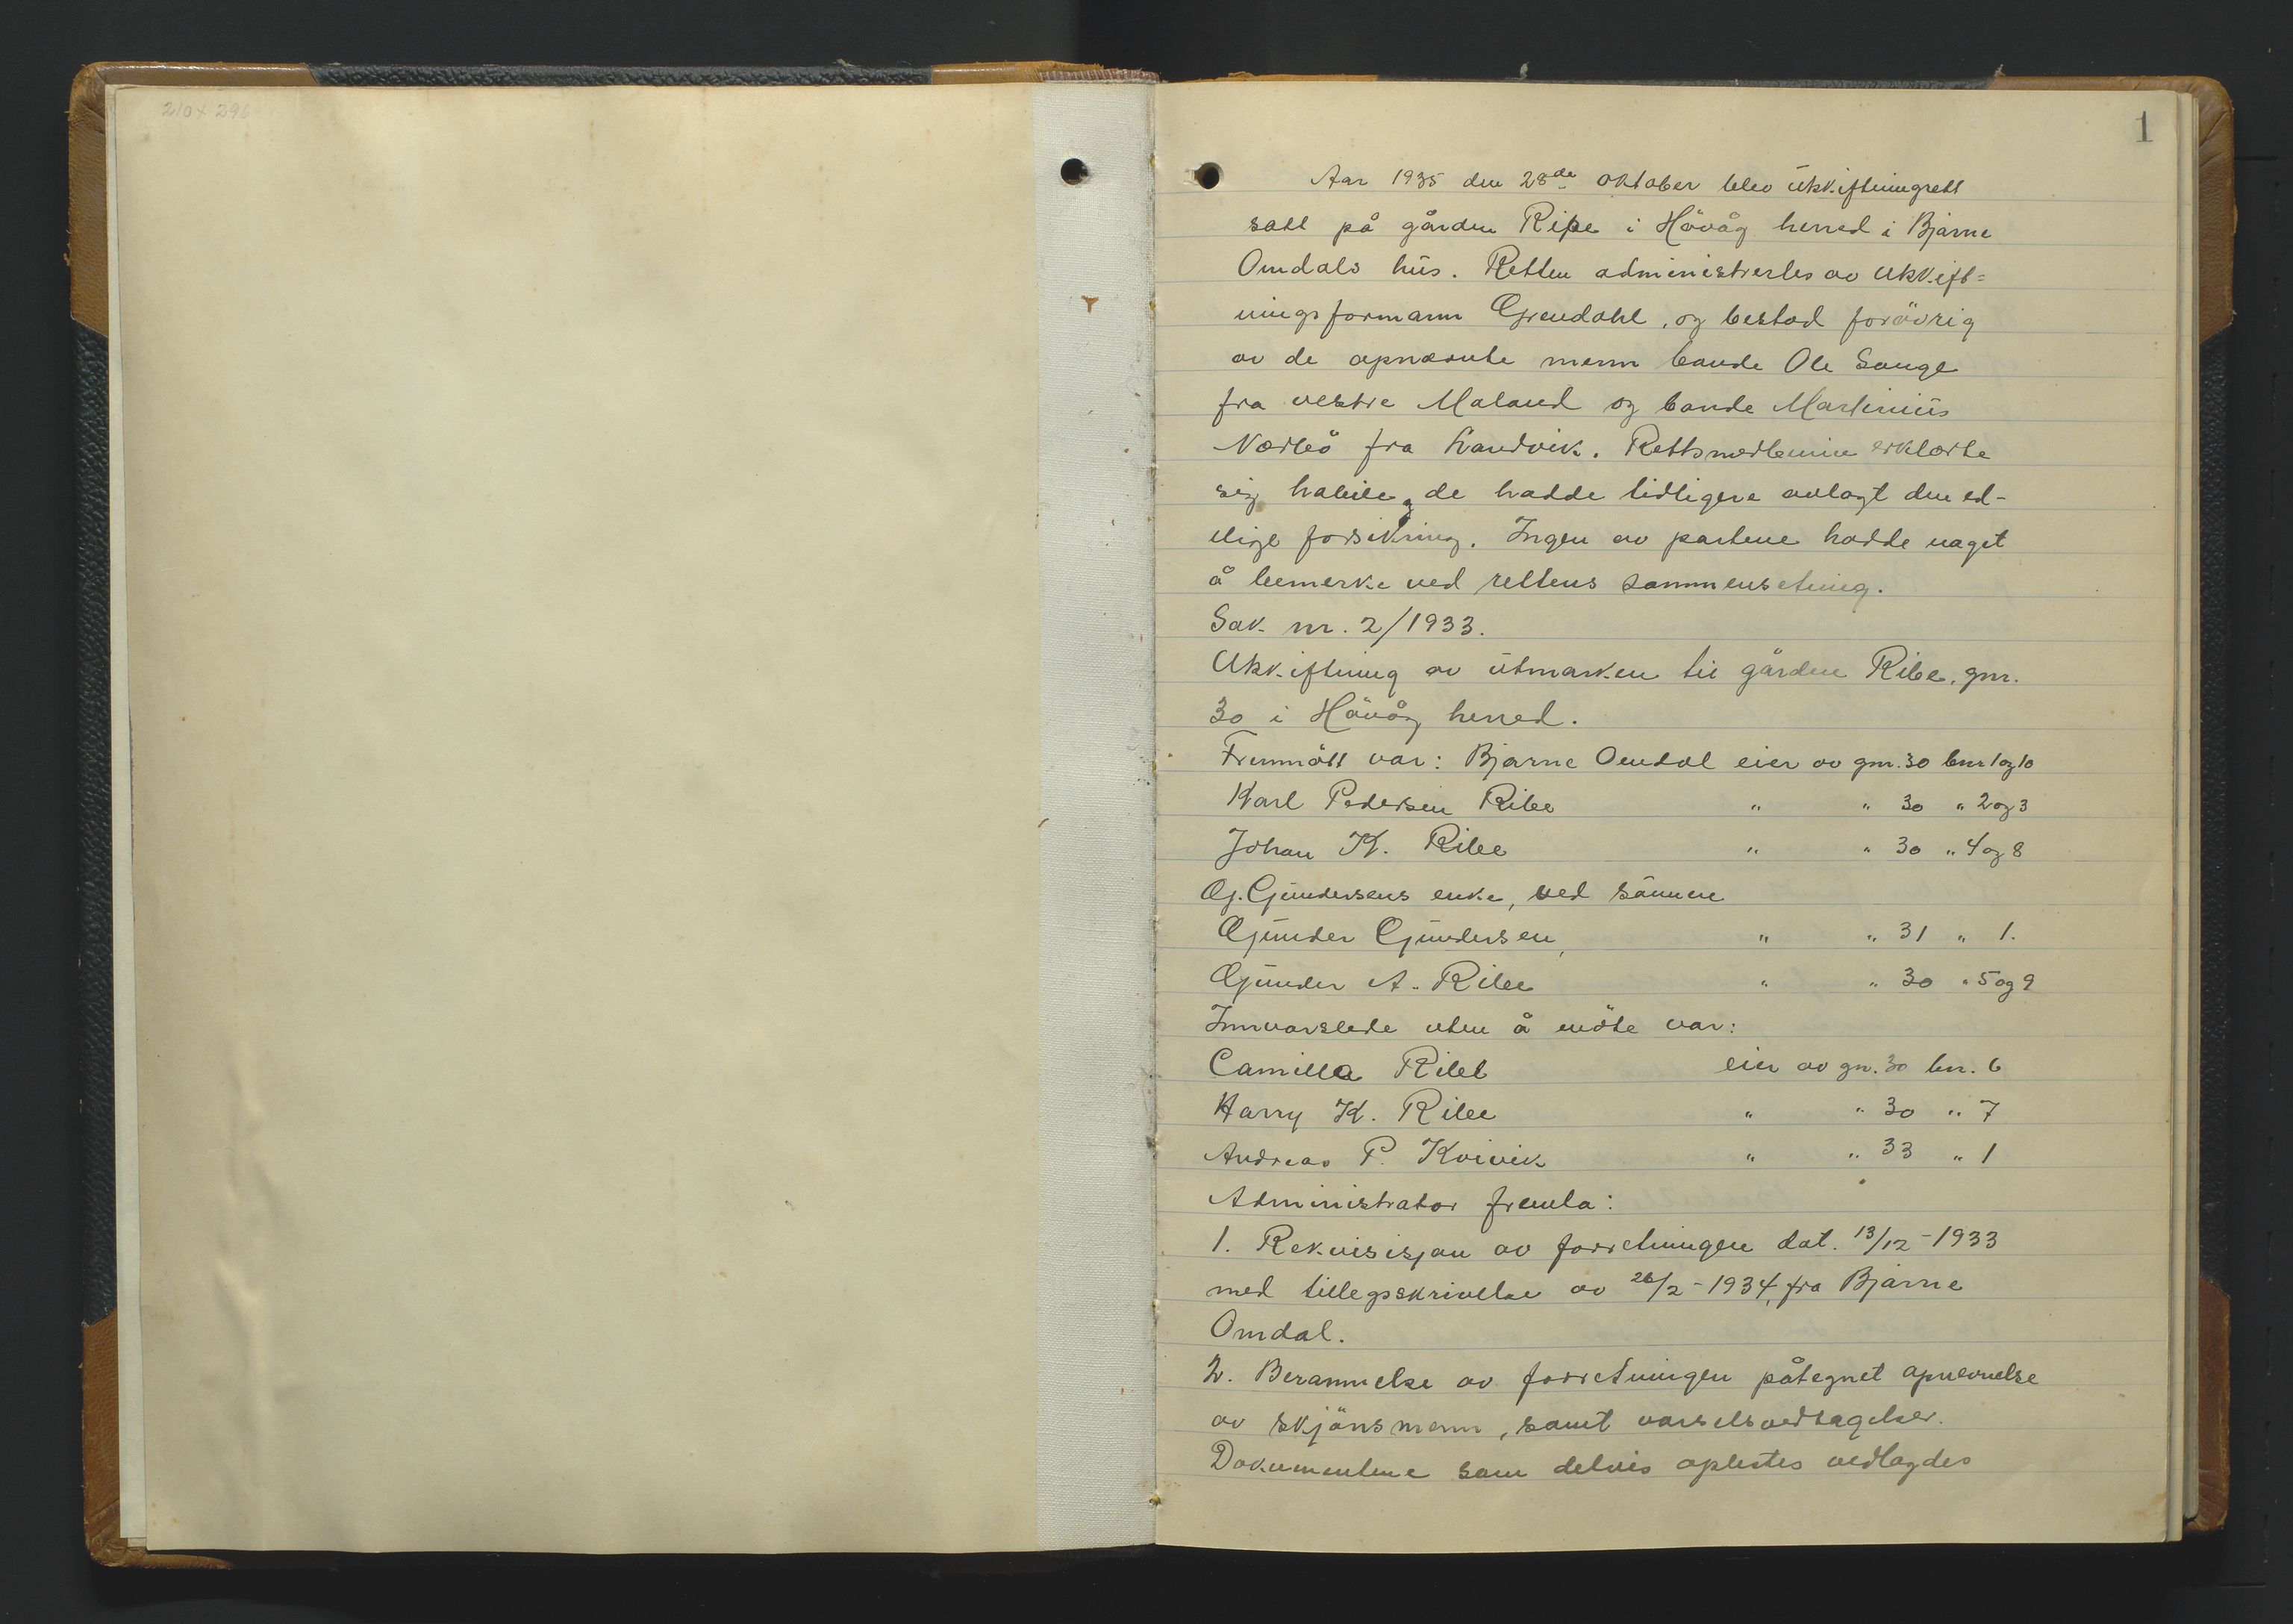 210 x 296
1
Aar 1935 den 28de oktober blev utskiftningrett
satt på gården Ribe i Hövåg herred i Bjarne
Omdals hus. Retten administrertes av utskift=
ningsformann Grendahl, og bestod forövrig
av de opnevnte menn bonde Ole Sauge
fra vestre Moland og bonde Martinius
Nörleö fra Landvik. Rettsmedlemme erklærte
sig habile og de hadde tidligere avlagt den ed-
elige forsikring. Ingen av partene hadde noget
å bemerke ved rettens sammensetning.
Sak nr. 2/1933.
Utskiftning av utmarken til gården Ribe, gnr.
30 i Hövåg herred.
Fremmött var: Bjarne Omdal eier av gnr. 30 bnr 1 og 10
Karl Pedersen Ribe " " 30 " 2 og 3
Johan K. Ribe " " 30 " 4 og 8
G. Gundersens enke, ved sönnen
Gunder Gundersen, " " 31 " 1.
Gunder A. Ribe " " 30 " 5 og 9
Innvarslede uten å möte var:
Camilla Ribe eier av gn. 30 bn. 6
Harry K. Ribe " " 30 " 7
Andreas P. Kvivik " " 33 " 1
Administrator fremla:
1. Rekvisisjon av forretningen dat. 13/12-1933
med tilleggsskrivelse av 26/2-1934, fra Bjarne
Omdal.
2. Berammelse av forretningen påtegnet opnevnelse
av skjönsmenn, samt varselsvedtagelser.
Dokumentene som delvis oplestes vedlagdes